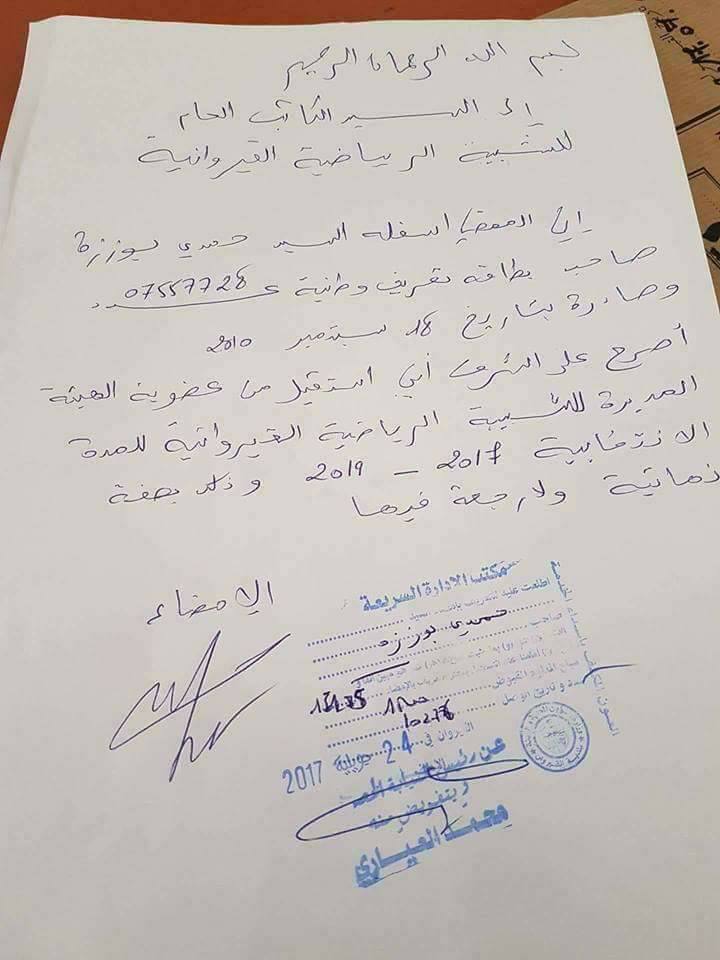 بسم الله الرحمان الرحيم
إلى السيد الكاتب العام
للشبيبة الرياضية القيروانية
إني الممضي أسفله السيد حمدي بوزرة
صاحب بطاقة تعريف وطنية عدد 07557728
وصادرة بتاريخ 18 سبتمبر 2010
أصرح على الشرف أني استقيل من عضوية الهيئة
المديرة للشبيبة الرياضية القيروانية للمدة
الانتخابية 2017 - 2019 وذلك بصفة
نهائية ولا رجعة فيها
الامضاء
مكتب الادارة السريعة
اطلعت عليه للتعريف بامضاء السيد
حمدي بوزرة
صاحب
القيروان في 24 جويلية 2017
عن رئيس النيابة
وبتفويض منه
محمد العياري